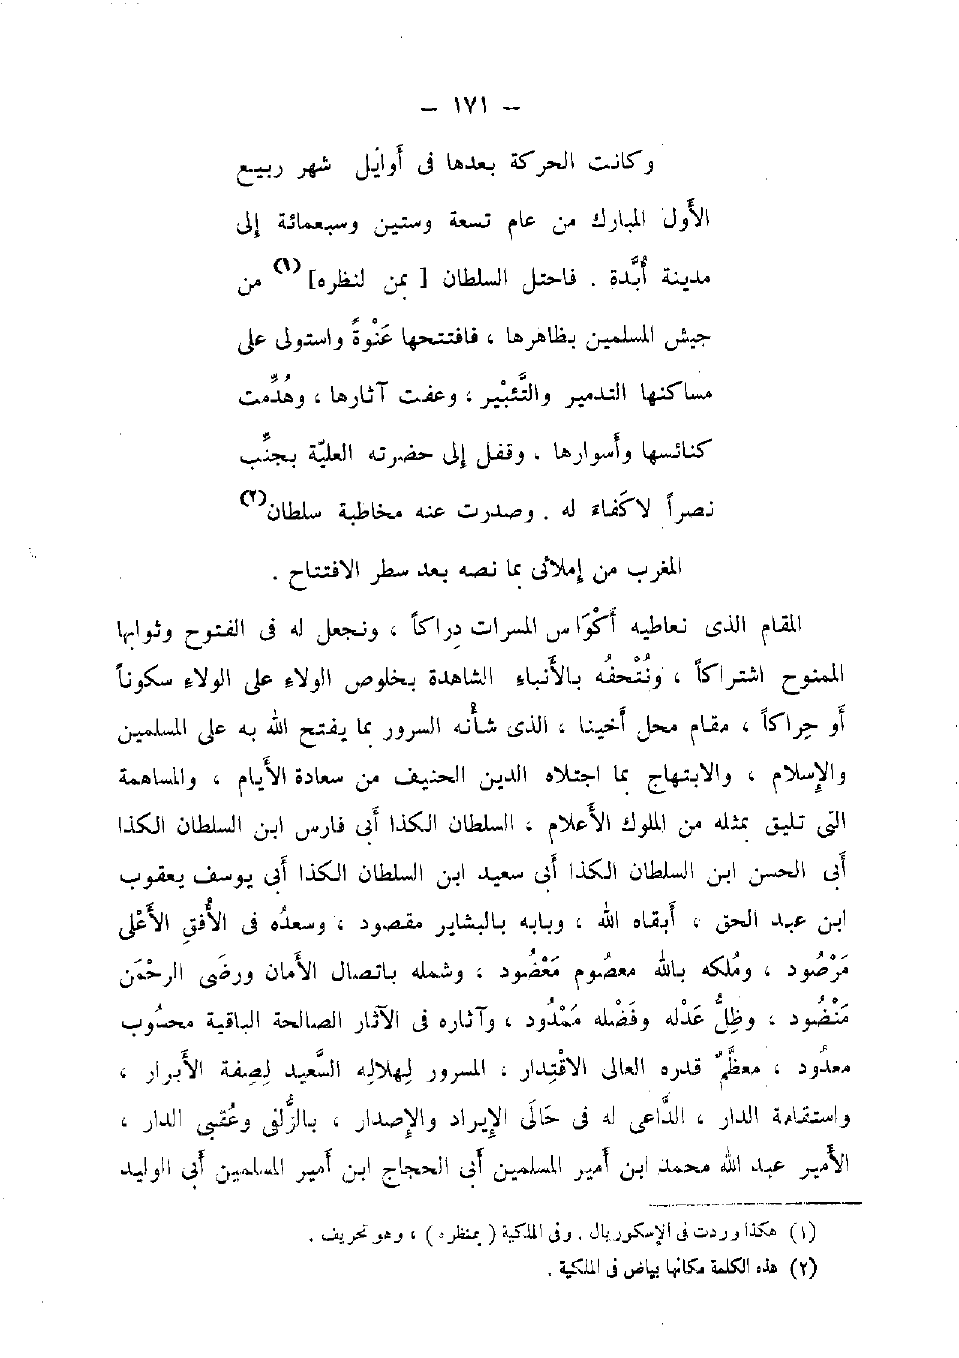 — ١٧١ —
وكانت الحركة بعدها فى أوائل شهر ربيع
الأول المبارك من عام تسعة وستين وسبعمائة إلى
مدينة أُبَّدة . فاحتل السلطان [ بمن لنظره] (١) من
جيش المسلمين بظاهرها ، فافتتحها عَنْوةً واستولى على
مساكنها التدمير والتَّتْبِير ، وعفت آثارها ، وهُدِّمت
كنائسها وأسوارها . وقفل إلى حضرته العليّة بجنّب
نصراً لا كَفاء له . وصدرت عنه مخاطبة سلطان(٢)
المغرب من إملائى بما نصه بعد سطر الافتتاح .
المقام الذى نعاطيه أكْوَاس المسرات دِراكاً ، ونجعل له فى الفتوح وثوابها
الممنوح اشتراكاً ، ونُتْحفُه بالأنباء الشاهدة بخلوص الولاء على الولاء سكوناً
أو حِراكاً ، مقام محل أخينا ، الذى شأنُه السرور بما يفتح الله به على المسلمين
والإسلام ، والابتهاج بما اجتلاه الدين الحنيف من سعادة الأيام ، والمساهمة
التى تليق بمثله من الملوك الأعلام ، السلطان الكذا أبى فارس ابن السلطان الكذا
أبى الحسن ابن السلطان الكذا أبى سعيد ابن السلطان الكذا أبى يوسف يعقوب
ابن عبد الحق ، أبقاه الله ، وبابه بالبشاير مقصود ، وسعدُه فى الأُفقِ الأعْلى
مَرْصُود ، ومُلكه بالله معصُوم مَعْضُود ، وشمله باتصال الأمان ورضَى الرحْمَن
مَنْضُود ، وظِلُّ عَدْله وفَضْله مَمْدُود ، وآثاره فى الآثار الصالحة الباقية محسُوب
معدُود ، معظَّمٌ قدره العالى الاقْتِدار ، المسرور لِهلالِه السَّعيد لِصِفة الأبرار ،
واستقامة الدار ، الدَّاعى له فى حَالَى الإيراد والإصدار ، بالزُّلفى وعُقبى الدار ،
الأمير عبد الله محمد ابن أمير المسلمين أبى الحجاج ابن أمير المسلمين أبى الوليد
(١) هكذا وردت فى الإسكوريال . وفى الملكية ( بمنظره ) ، وهو تحريف .
(٢) هذه الكلمة مكانها بياض فى الملكية .